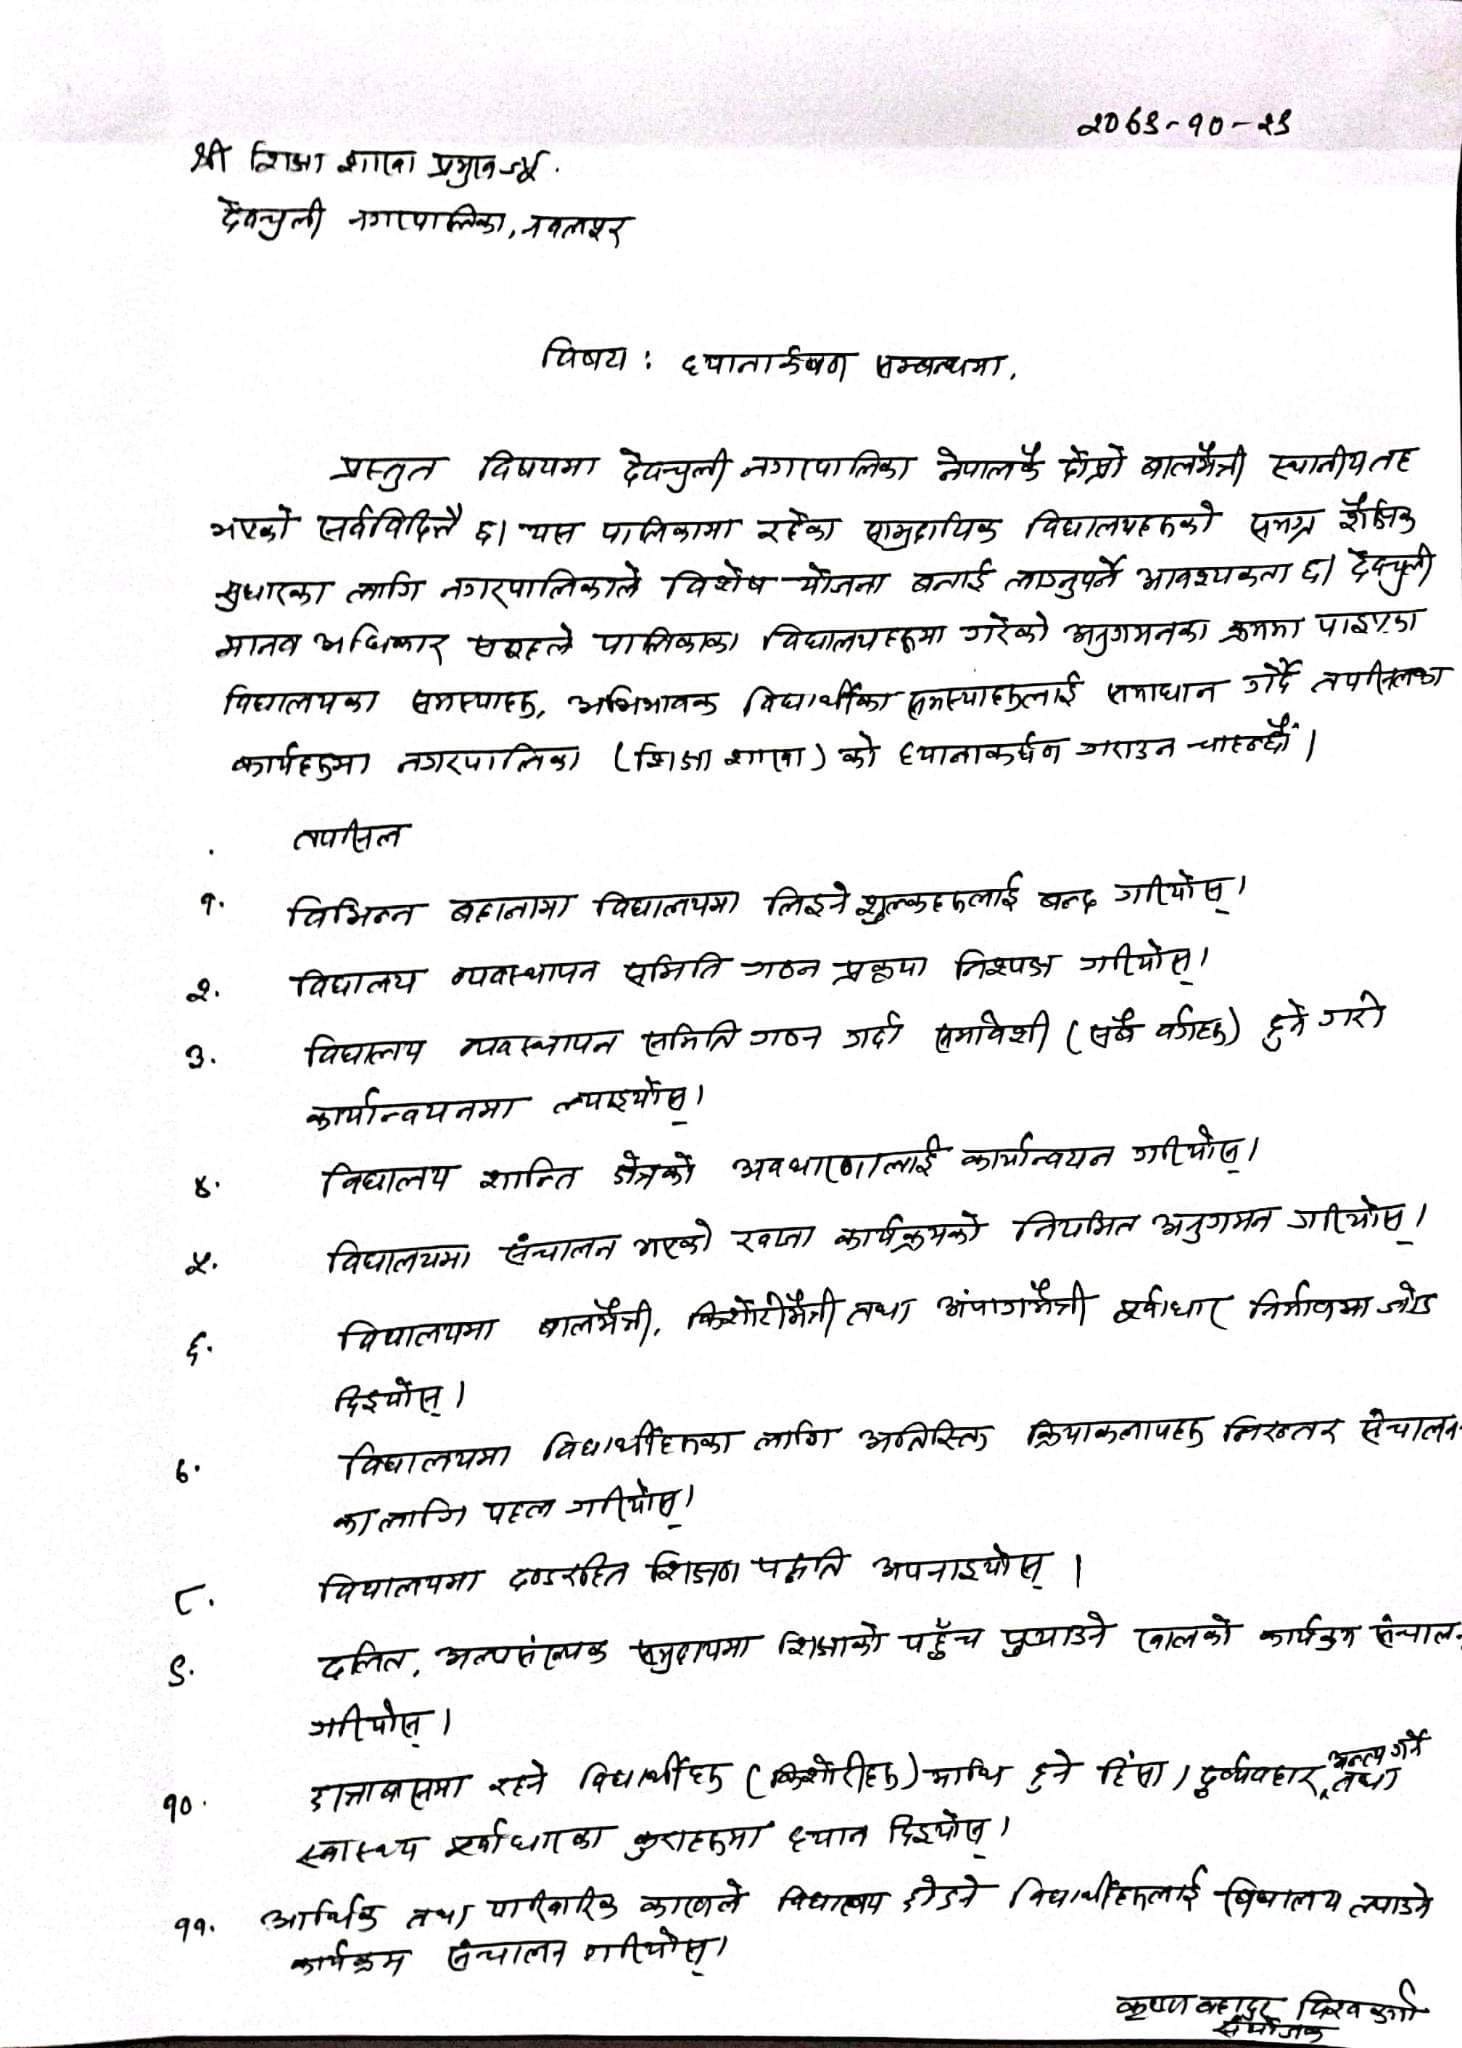 २०७९-१०-२९
श्री शिक्षा शाखा प्रमुख ज्यू.
देवचुली नगरपालिका, नवलपुर
विषय : ध्यानार्कषण सम्बन्धमा.
प्रस्तुत विषयमा देवचुली नगरपालिका नेपालकै दोस्रो बालमैत्री स्थानीय तह
भएको सर्वविदितै छ। यस पालिकामा रहेका सामुदायिक विद्यालयहरूको समग्र शैक्षिक
सुधारका लागि नगरपालिकाले विशेष योजना बनाई लाग्नुपर्ने आवश्यकता छ। देवचुली
मानव अधिकार समूहले पालिकाका विद्यालयहरूमा गरेको अनुगमनका क्रममा पाइएका
विद्यालयका समस्याहरू, अभिभावक विद्यार्थीका समस्याहरूलाई समाधान गर्दै तपसिलका
कार्यहरूमा नगरपालिका (शिक्षा शाखा) को ध्यानाकर्षण गराउन चाहन्छौं।
तपसिल
१. विभिन्न बहानामा विद्यालयमा लिइने शुल्कहरूलाई बन्द गरियोस्।
२. विद्यालय व्यवस्थापन समिति गठन प्रक्रया निश्पक्ष गरियोस्।
३. विद्यालय व्यवस्थापन समिति गठन गर्दा समावेशी (सबै वर्गहरू) हुने गरी
कार्यान्वयनमा ल्याइयोस्।
४. विद्यालय शान्ति क्षेत्रको अवधारणालाई कार्यान्वयन गरियोस्।
५. विद्यालयमा संचालन भएको खाजा कार्यक्रमको नियमित अनुगमन गरियोस्।
६. विद्यालयमा बालमैत्री, किशोरीमैत्री तथा अपांगमैत्री पूर्वाधार निर्माणमा जोड
दिइयोस्।
७. विद्यालयमा विद्यार्थीहरूका लागि अतिरिक्त क्रियाकलापहरू निरन्तर संचालन
का लागि पहल गरियोस्।
८. विद्यालयमा दण्डरहित शिक्षण पद्धति अपनाइयोस्।
९. दलित, अल्पसंख्यक समुदायमा शिक्षाको पहुँच पुर्‍याउने खालको कार्यक्रम संचालन
गरियोस्।
१०. छात्रावासमा रहने विद्यार्थीहरू (किशोरीहरू) माथि हुने हिंसा, दुर्व्यवहार, अन्त्य गर्ने तथा
स्वास्थ्य पूर्वाधारका कुराहरूमा ध्यान दिइयोस्।
११. आर्थिक तथा पारिवारिक कारणले विद्यालय छोडने विद्यार्थीहरूलाई विद्यालय ल्याउने
कार्यक्रम संचालन गरियोस्।
कृष्ण बहादुर विश्वकर्मा
संयोजक